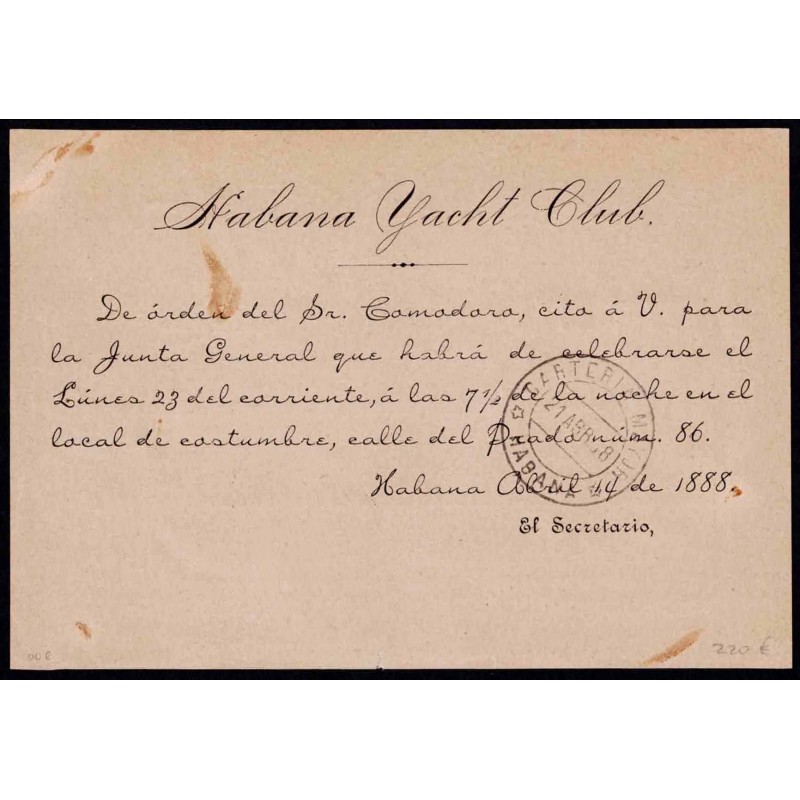 Habana Yacht Club.
De órden del Sr. Comodoro, cito á V. para
la Junta General que habrá de celebrarse el
Lúnes 23 del corriente, á las 7 1/2 de la noche en el
local de costumbre, calle del Prado núm. 86.
Habana Abril 14 de 1888.
El Secretario,
CARTERIA MAYOR
21 ABR 88
HABANA
220 €